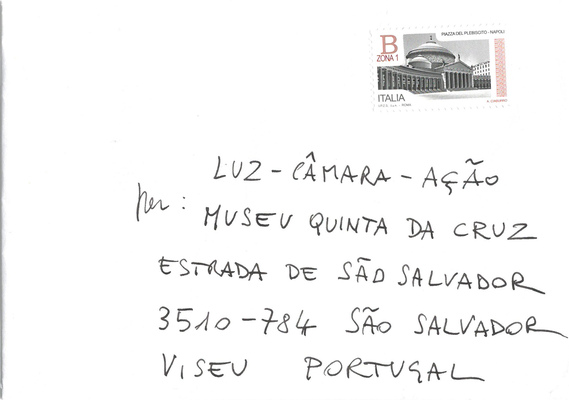 PIAZZA DEL PLEBISCITO - NAPOLI
B
ZONA 1
ITALIA
LUZ - CÂMARA - AÇÃO
per : MUSEU QUINTA DA CRUZ
ESTRADA DE SÃO SALVADOR
3510-784 SÃO SALVADOR
VISEU PORTUGAL